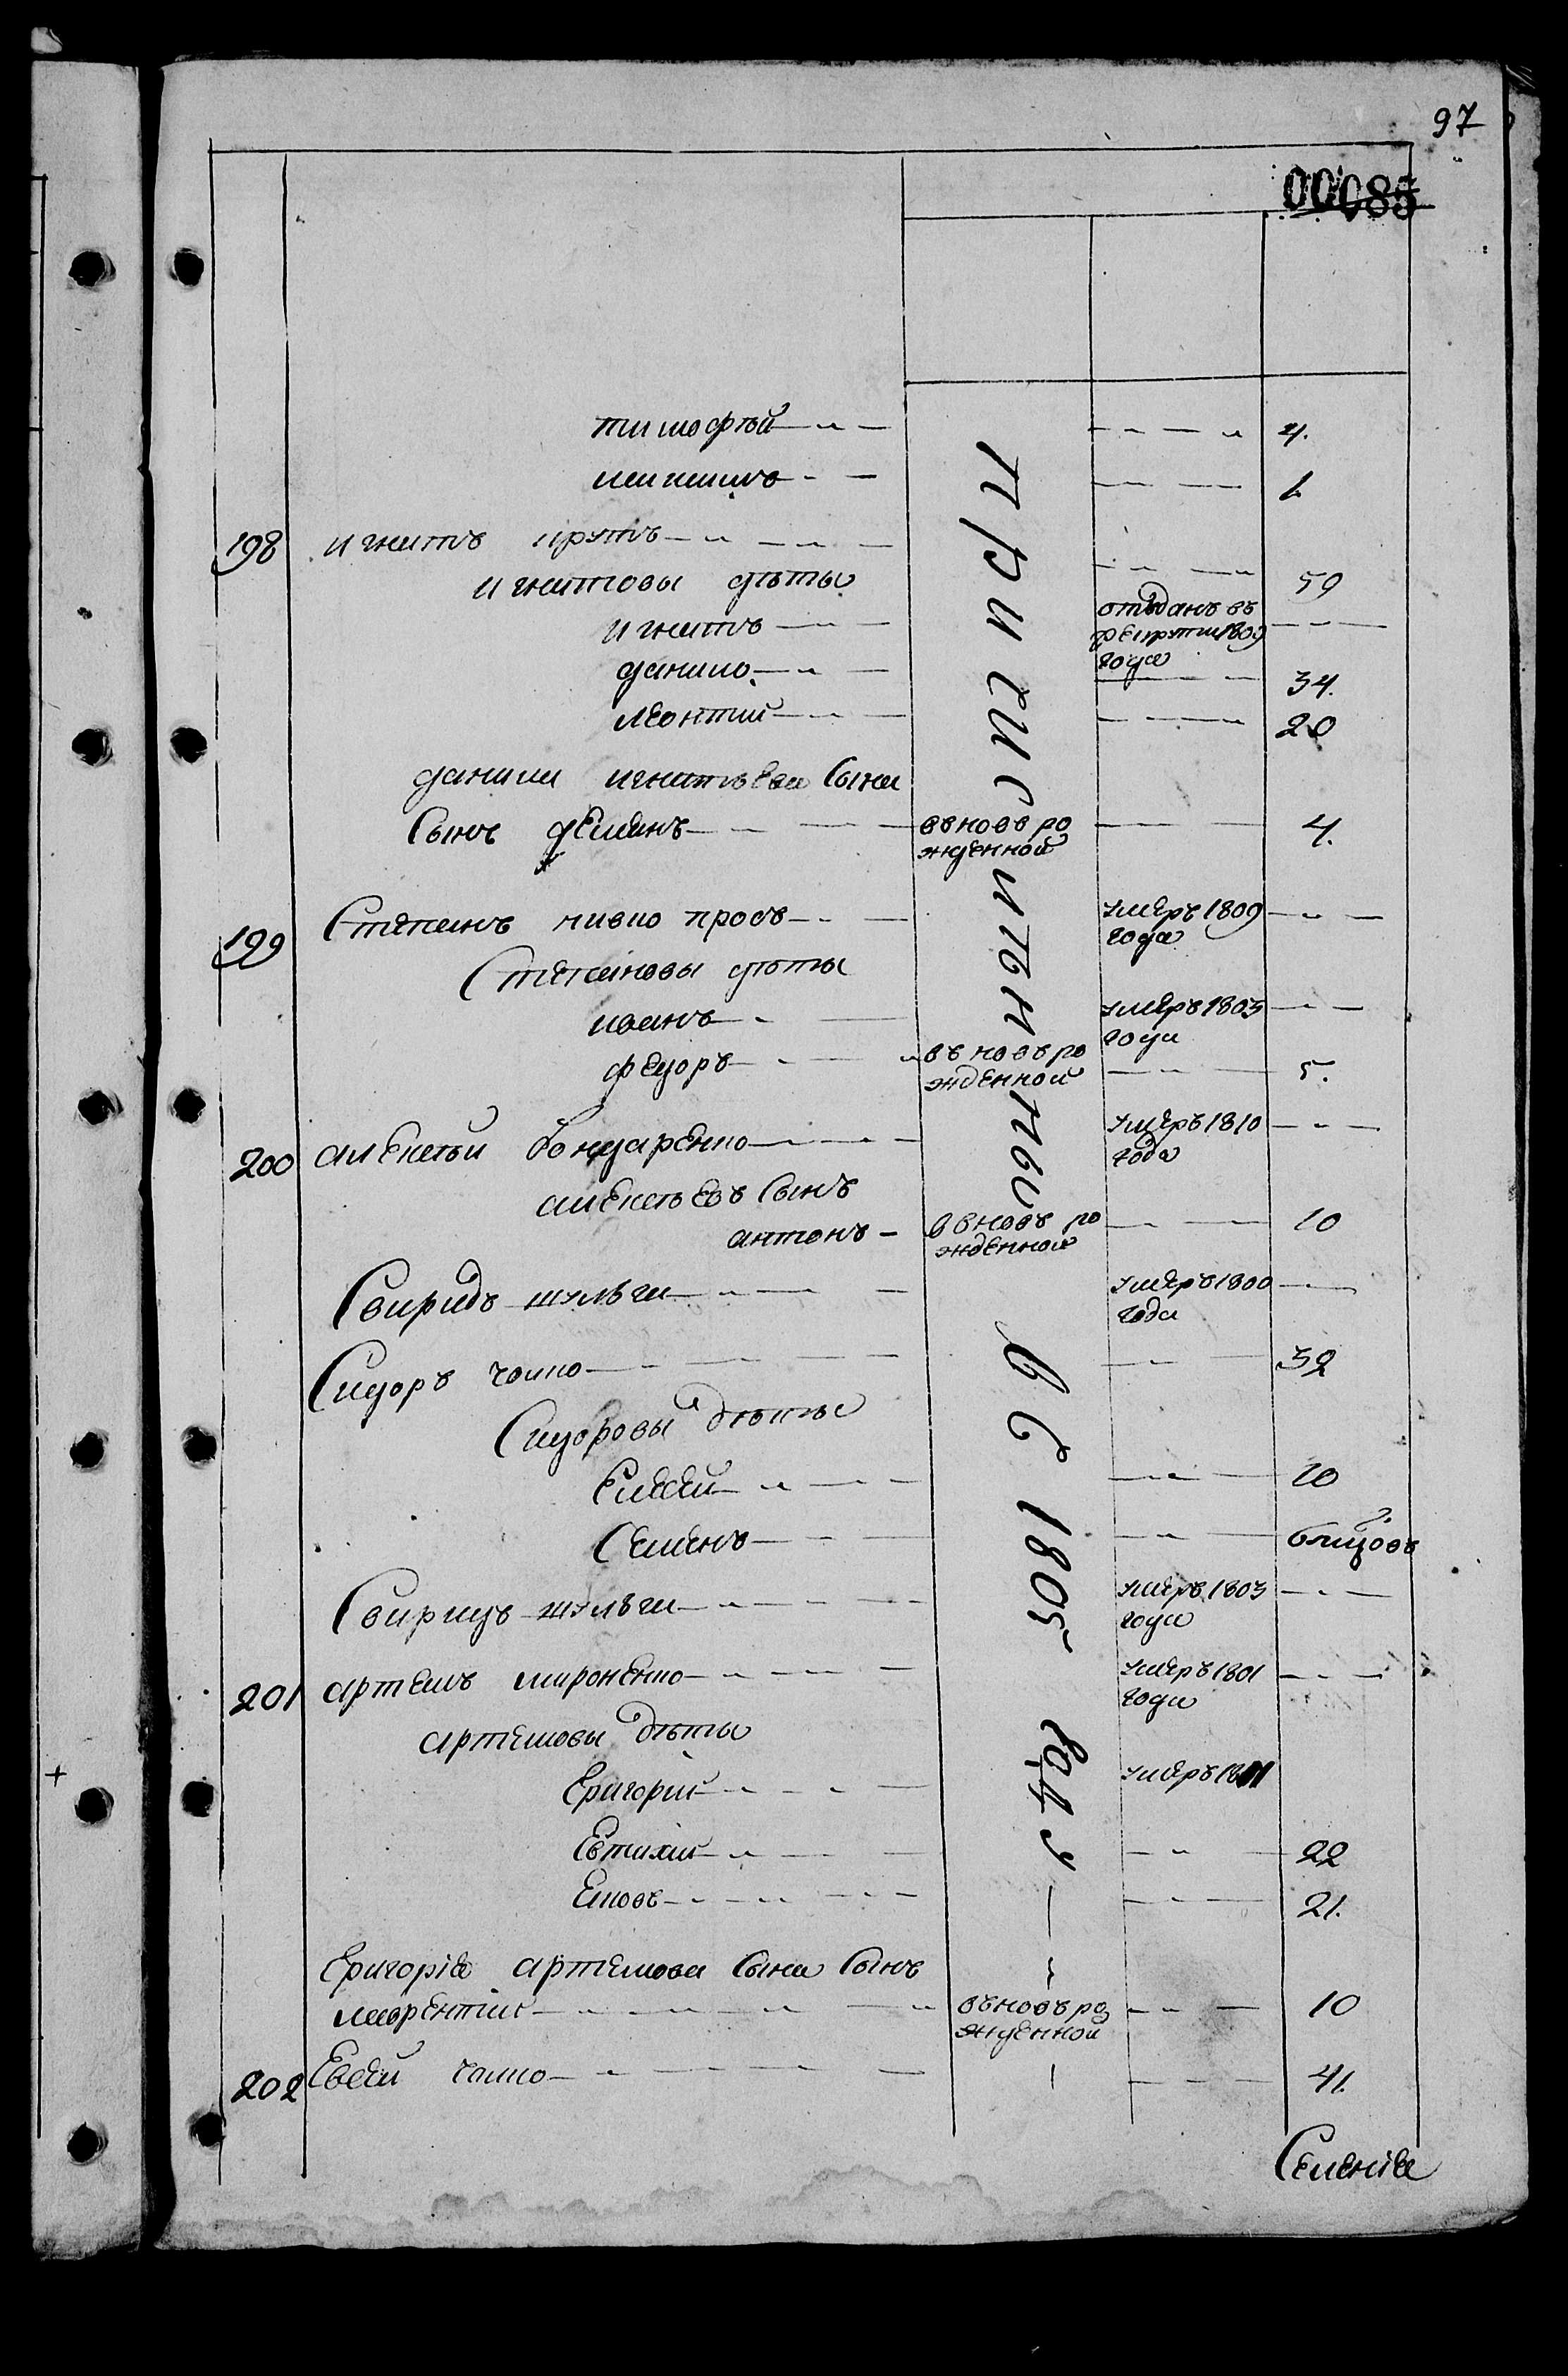 97
00085
тимофѣй 4.
максимъ 1.
198 игнатъ крутъ 59
игнатовы дѣты
игнатъ отъданъ въ
рекруты 1809
года
данило 34.
леонтій 20
данила игнатьева Сына
Сынъ демянъ въновъ ро
жденной 4.
199 Степанъ умеръ 1809
года
Степановы дѣты
иванъ умеръ 1803
года
федоръ въновъ ро
жденной 5.
200 алексѣй бондаренко умеръ 1810
года
алексѣевъ Сынъ
антонъ въновъ ро
жденной 10
Свиридъ шульга умеръ 1800
года
Сидоръ 32
Сидоровы дѣты
Елисей 10
Семенъ 6 мцовъ
Свиридъ шульга умеръ 1803
года
201 артемъ мироненко умеръ 1801
года
артемовы дѣты
Григорій умеръ 1811
Евтихій 22
Яковъ 21.
Григорія артемова Сына Сынъ
лаврентій въновъ ро
жденной 10
202 Евсей 41.
приписаны въ 1805 году
Семенія